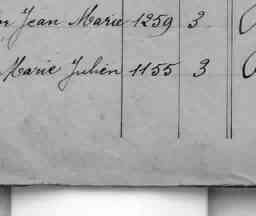 Jean Marie 1259 3
Marie Julien 1155 3